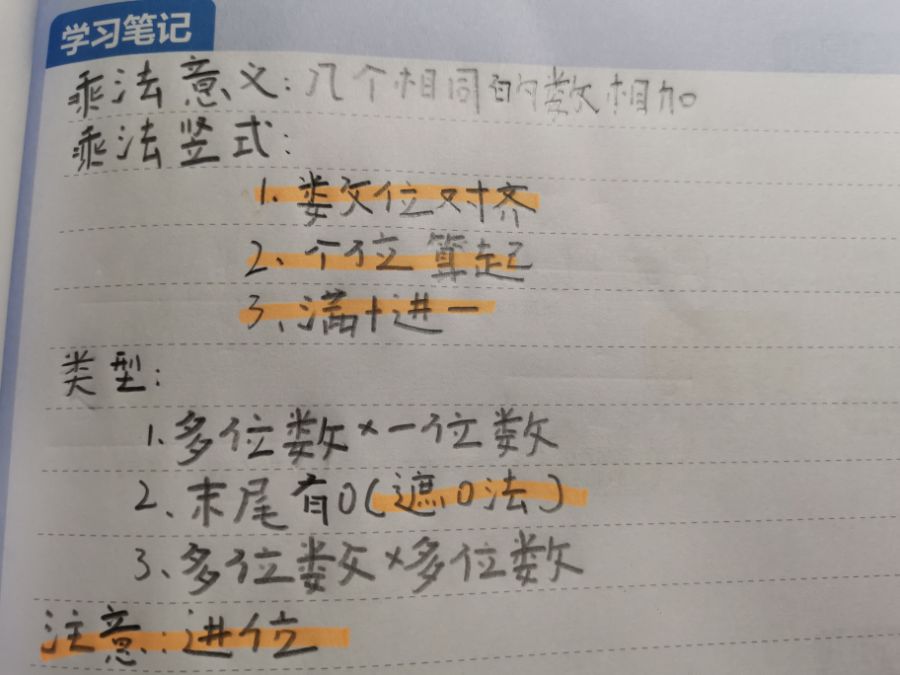 学习笔记
乘法意义：几个相同的数相加
乘法竖式：
1.数位对齐
2、个位算起
3、满十进一
类型：
1.多位数×一位数
2、末尾有0（遮0法）
3、多位数×多位数
注意：进位